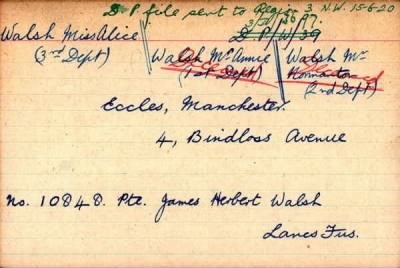 D & P file sent to Region 3. N.W. 15-6-20
D P/W/39
Walsh Miss Alice
(3rd Dept)
Walsh Mrs Annie
(1st Dept)
Walsh Mr
(2nd Dept)
Eccles, Manchester.
4, Bindloss Avenue
No. 10848. Pte. James Herbert Walsh
Lancs Fus.